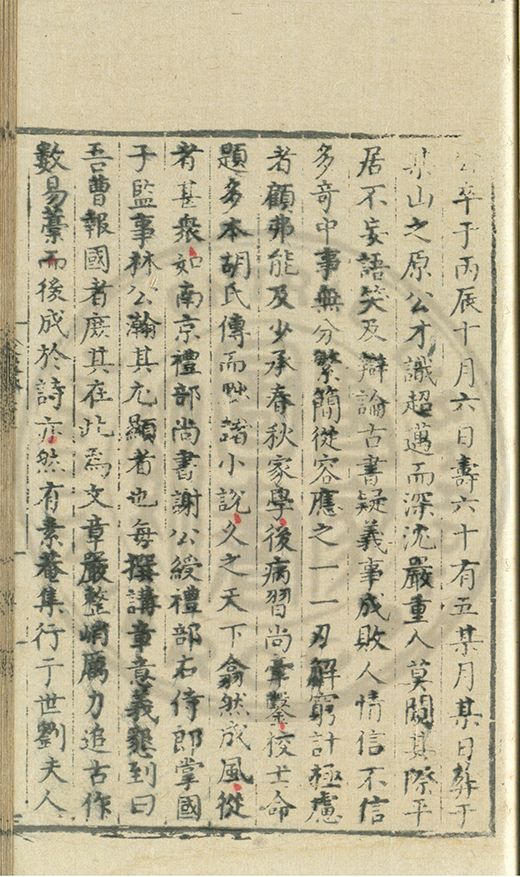 公卒于丙辰十月六日壽六十有五某月某日葬于
某山之原公才識超邁而深沈嚴重人莫闚其際平
居不妄語笑及辯論古書疑義事成敗人情信不信
多奇中事無分繁簡從容應之一一刃解窮計極慮
者顧弗能及少承春秋家學後病習尚牽鑿校士命
題多本胡氏傳而黜諸小說久之天下翕然成風從
者甚衆如南京禮部尚書謝公綬禮部右侍郎掌國
子監事林公瀚其尤顯者也每撰講章意義懇到曰
吾曹報國者庶其在此為文章嚴整峭厲力追古作
數易藁而後成於詩亦然有素菴集行于世劉夫人